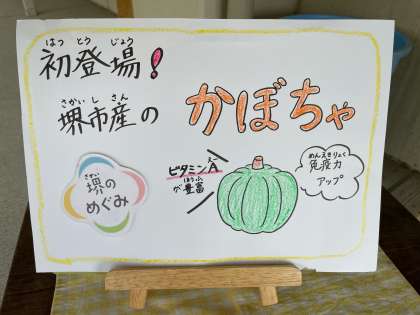 はつ とう じょう
初登場!
さかいし さん
堺市産の
かぼちゃ
ビタミンA
ほうふ
が豊富
めんえきりょく
免疫力
アップ
さかい
堺の
めぐみ